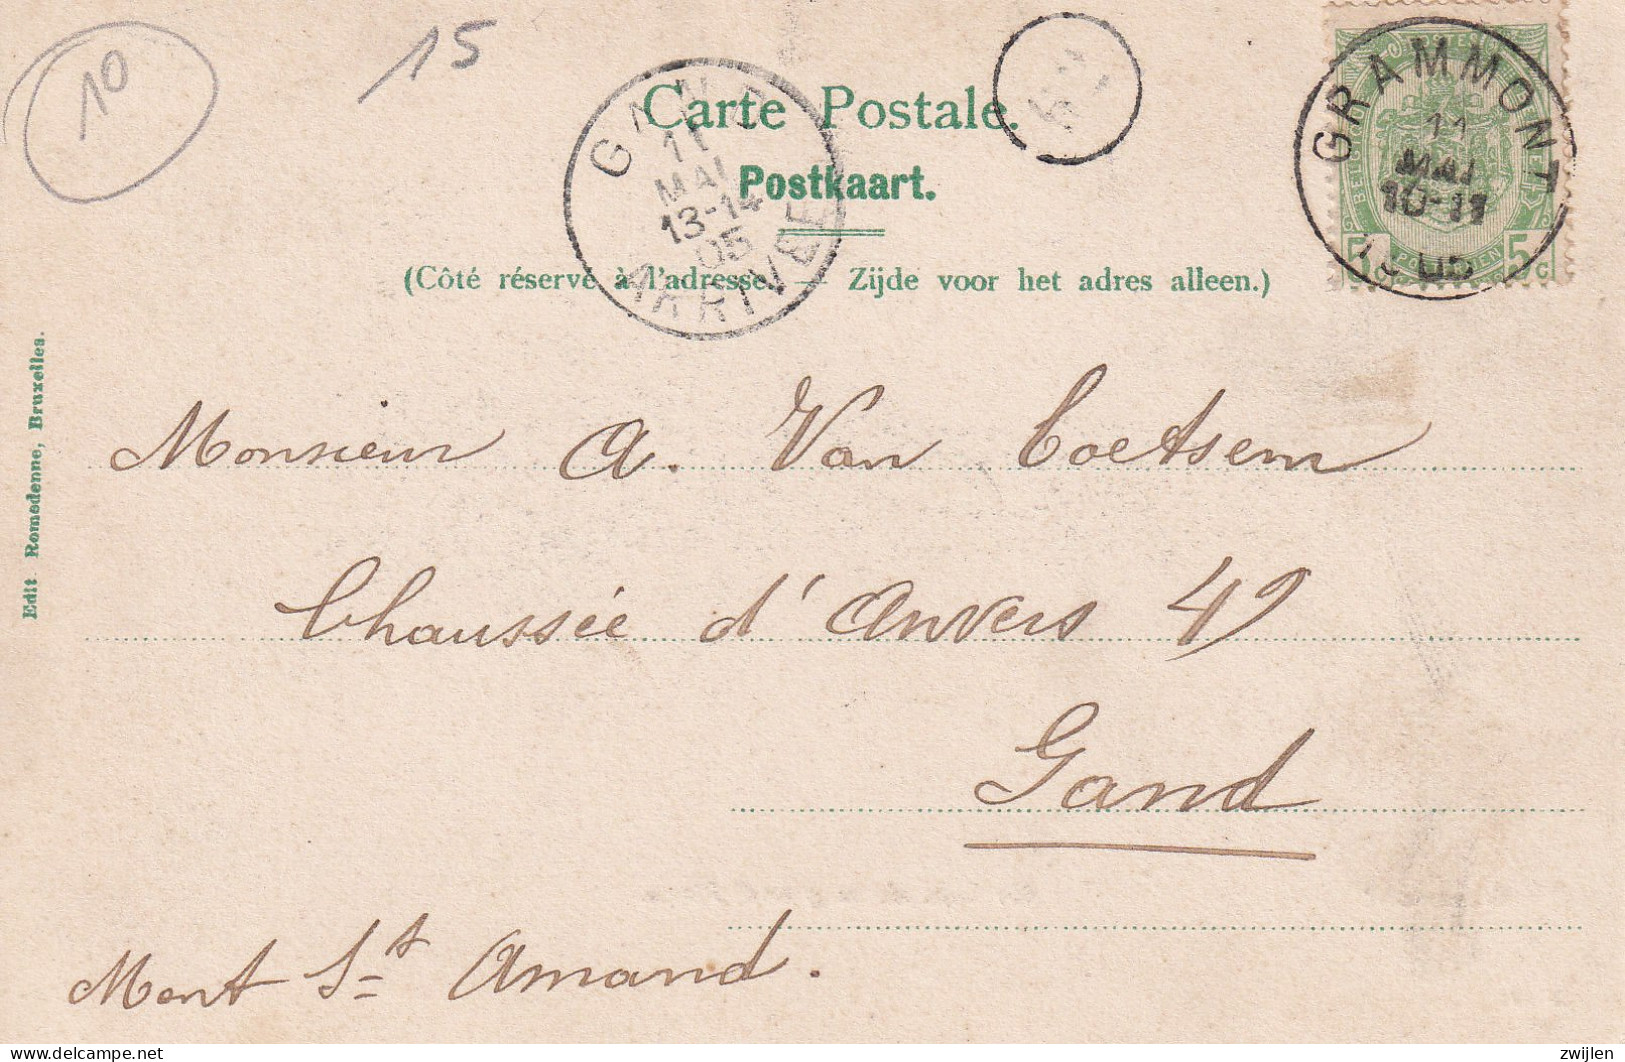 10
15
Carte Postale.
Postkaart.
(Côté réservé à l'adresse. — Zijde voor het adres alleen.)
GAND
11
MAI
13-14
05
ARRIVÉE
GRAMMONT
11
MAI
10-11
1905
5 5c
Edit Romedenne, Bruxelles.
Monsieur A. Van Coetsem
Chaussée d'Anvers 49
Gand
Mont St Amand.
zwijlen